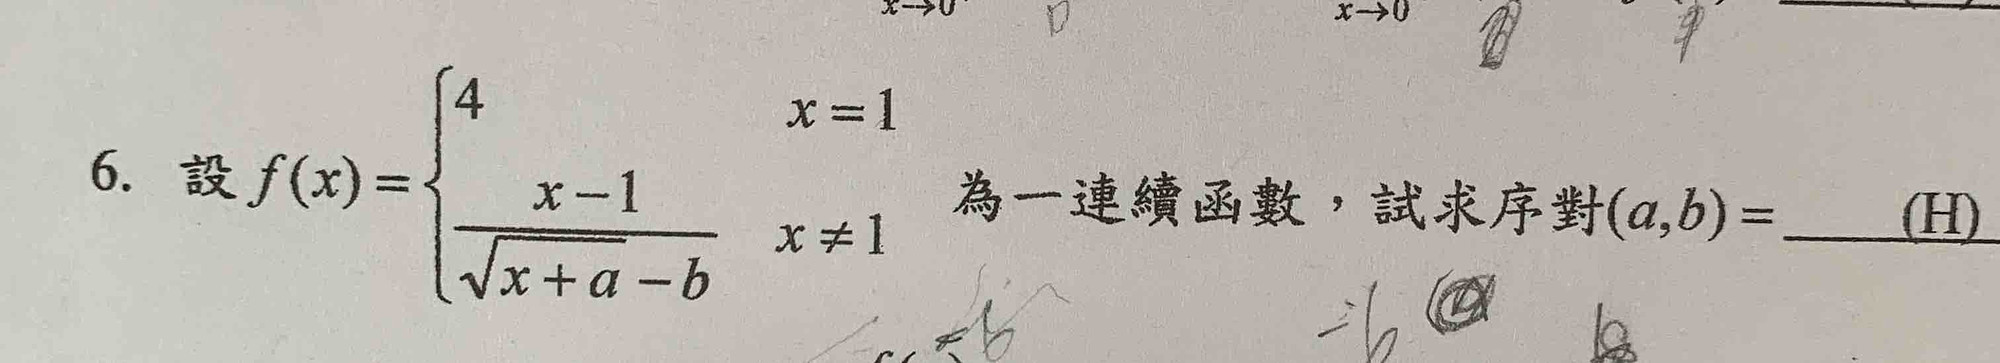 x→0 x→0
6. 設 f(x) = { 4 x = 1
(x − 1) / (√(x + a) − b) x ≠ 1 為一連續函數，試求序對(a,b) = ____(H)
≠b =b b